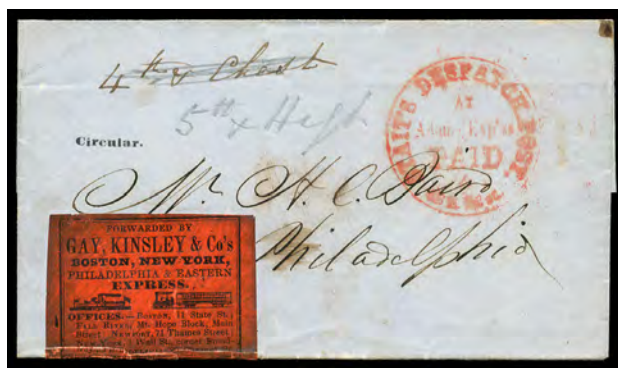 4th & Chest
5th & High
Circular.
DESPATCH POST
AT
PAID
Mr H. C. Baird
Philadelphia
FORWARDED BY
GAY, KINSLEY & Co's
BOSTON, NEW YORK,
PHILADELPHIA & EASTERN
EXPRESS.
OFFICES.—Boston, 11 State St.;
Fall River, Mt. Hope Block, Main
Street; Newport, 71 Thames Street;
New York, 1 Wall St., corner Broad-